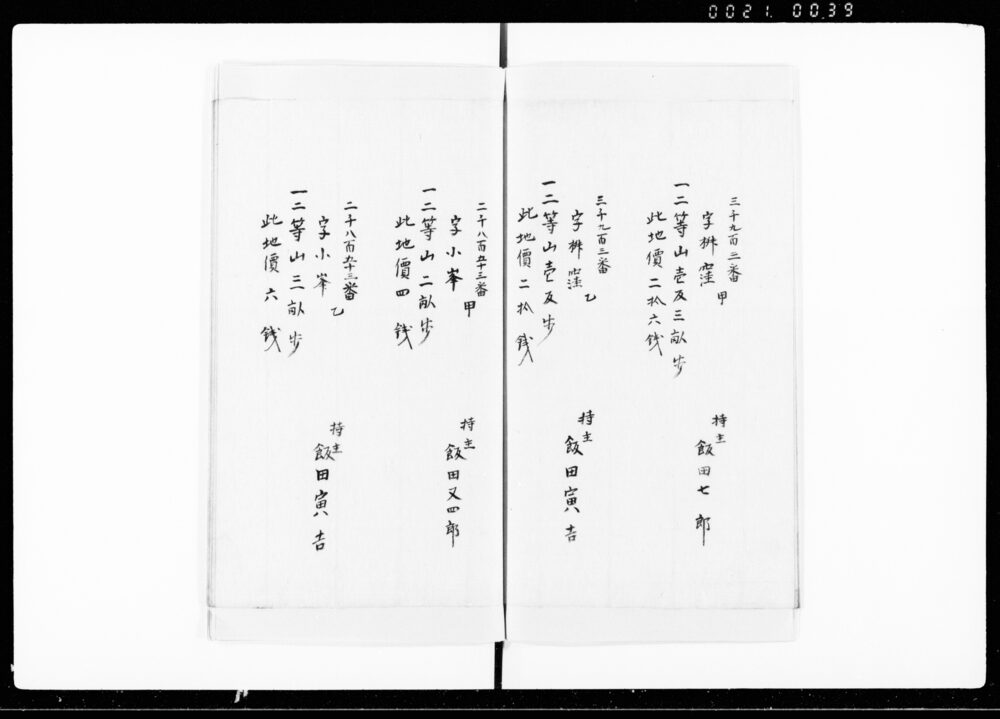 0021. 00.39
三千九百三番
字桝窪 甲
一二等山壱反三畝歩
此地價二拾六銭
持主
飯田七郎
三千九百三番
字桝窪 乙
一二等山壱反歩
此地價二拾銭
持主
飯田寅吉
二千八百五十三番
字小峯 甲
一二等山二畝歩
此地價四銭
持主
飯田又四郎
二千八百五十三番
字小峯 乙
一二等山三畝歩
此地價六銭
持主
飯田寅吉